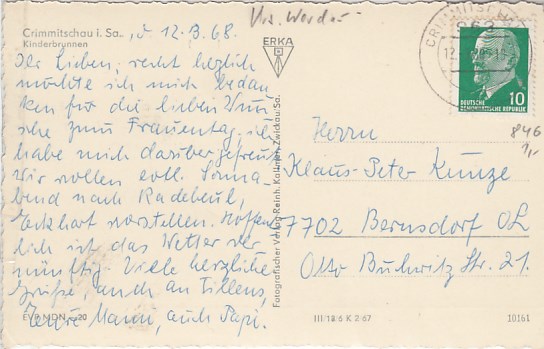 Crimmitschau i. Sa., d 12.3.68.
Kinderbrunnen
Ihr Lieben, recht herzlich
möchte ich mich bedan
ken für die lieben Wün
sche zum Frauentag, ich
habe mich darüber gefreut.
Wir wollen evtl. Sonna-
bend nach Radebeul,
Eckhart vorstellen. Hoffent
lich ist das Wetter ver
nünftig. Viele herzliche
Grüße, auch an Tillens,
Mami, auch Papi.
EVP MDN -,20
ERKA
Fotografischer Verlag Reinh. Kallmer, Zwickau/Sa.
III/18/6 K 2/67
10161
CRIMMITSCHAU
DEUTSCHE
DEMOKRATISCHE REPUBLIK
10
846
1,-
Herrn
Klaus-Peter Kunze
7702 Bernsdorf OL
Otto Buchwitz Str. 21.